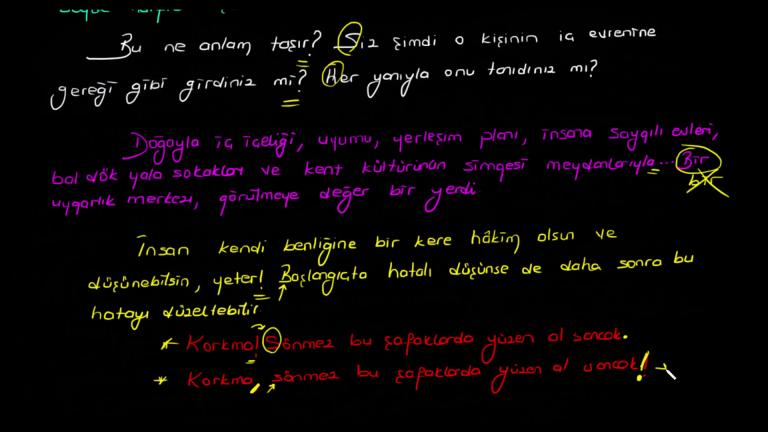 Bu ne anlam taşır? Siz şimdi o kişinin iç evrenine
gereği gibi girdiniz mi? Her yanıyla onu tanıdınız mı?
Doğayla iç içeliği, uyumu, yerleşim planı, insana saygılı evleri,
bal dök yala sokaklar ve kent kültürünün simgesi meydanlarıyla... Bir
bir
uygarlık merkezi, görülmeye değer bir yerdi
İnsan kendi benliğine bir kere hâkim olsun ve
düşünebilsin, yeter! Başlangıçta hatalı düşünse de daha sonra bu
hatayı düzeltebilir
* Korkma! Sönmez bu şafaklarda yüzen al sancak.
* Korkma, sönmez bu şafaklarda yüzen al sancak!